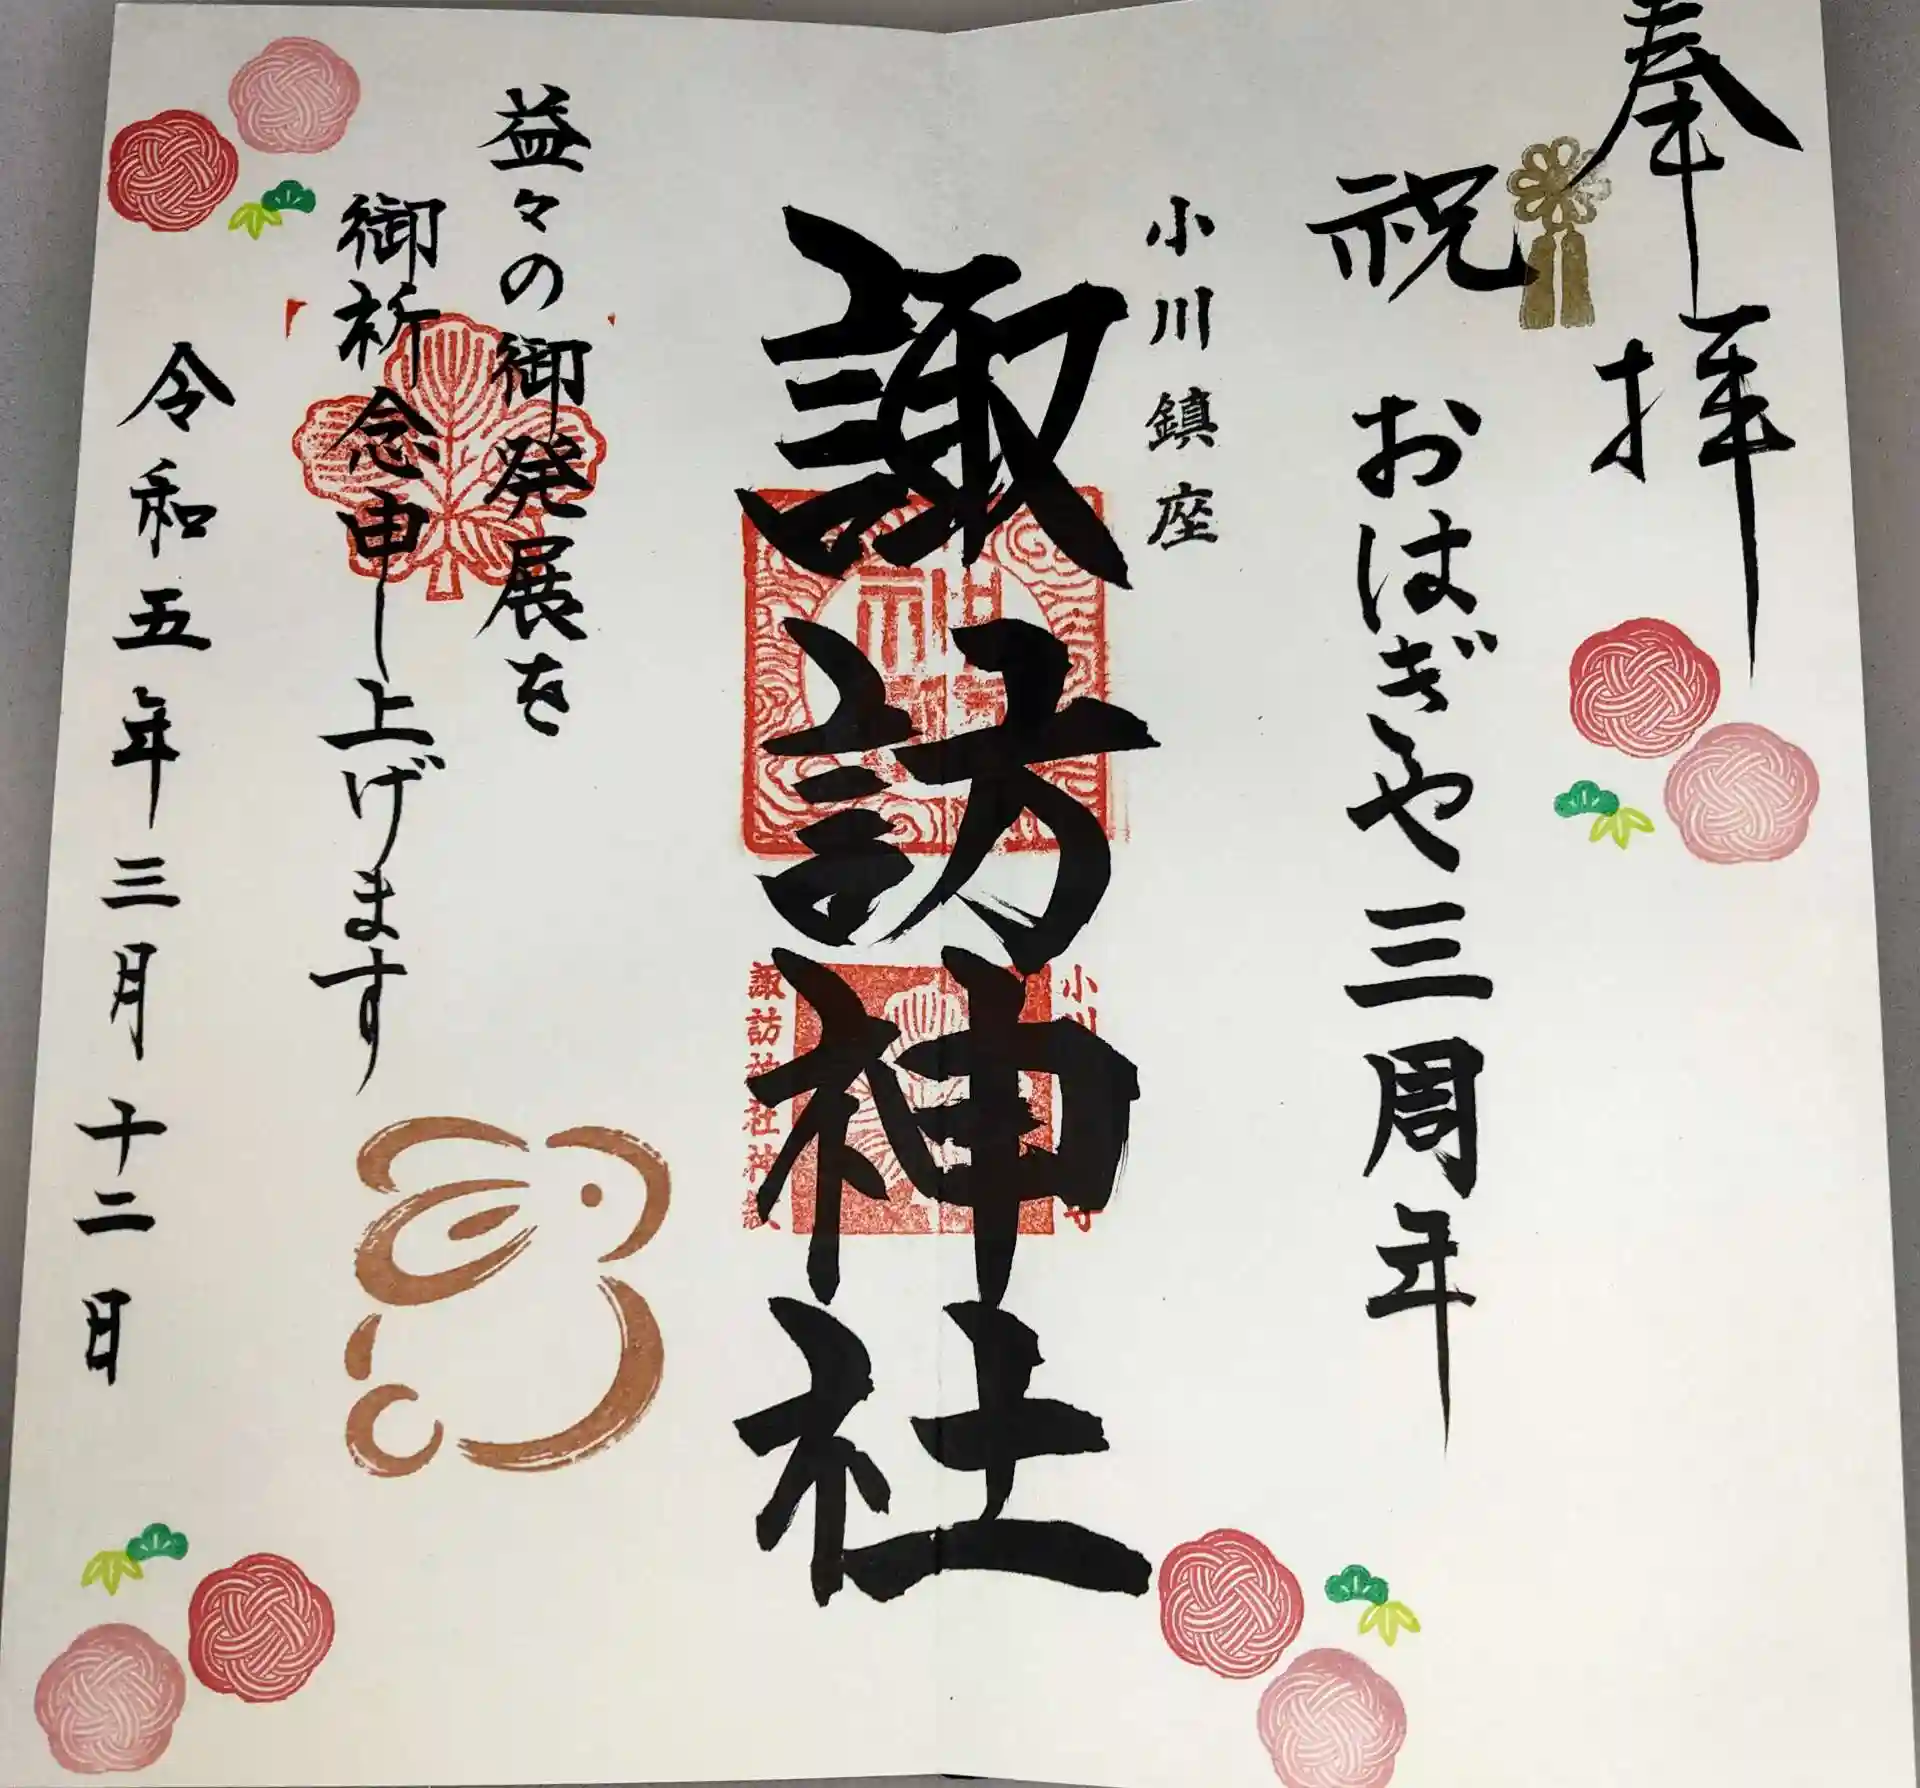 奉拝
祝 おはぎや三周年
小川鎮座
諏訪神社
益々の御発展を
御祈念申し上げます
令和五年三月十二日